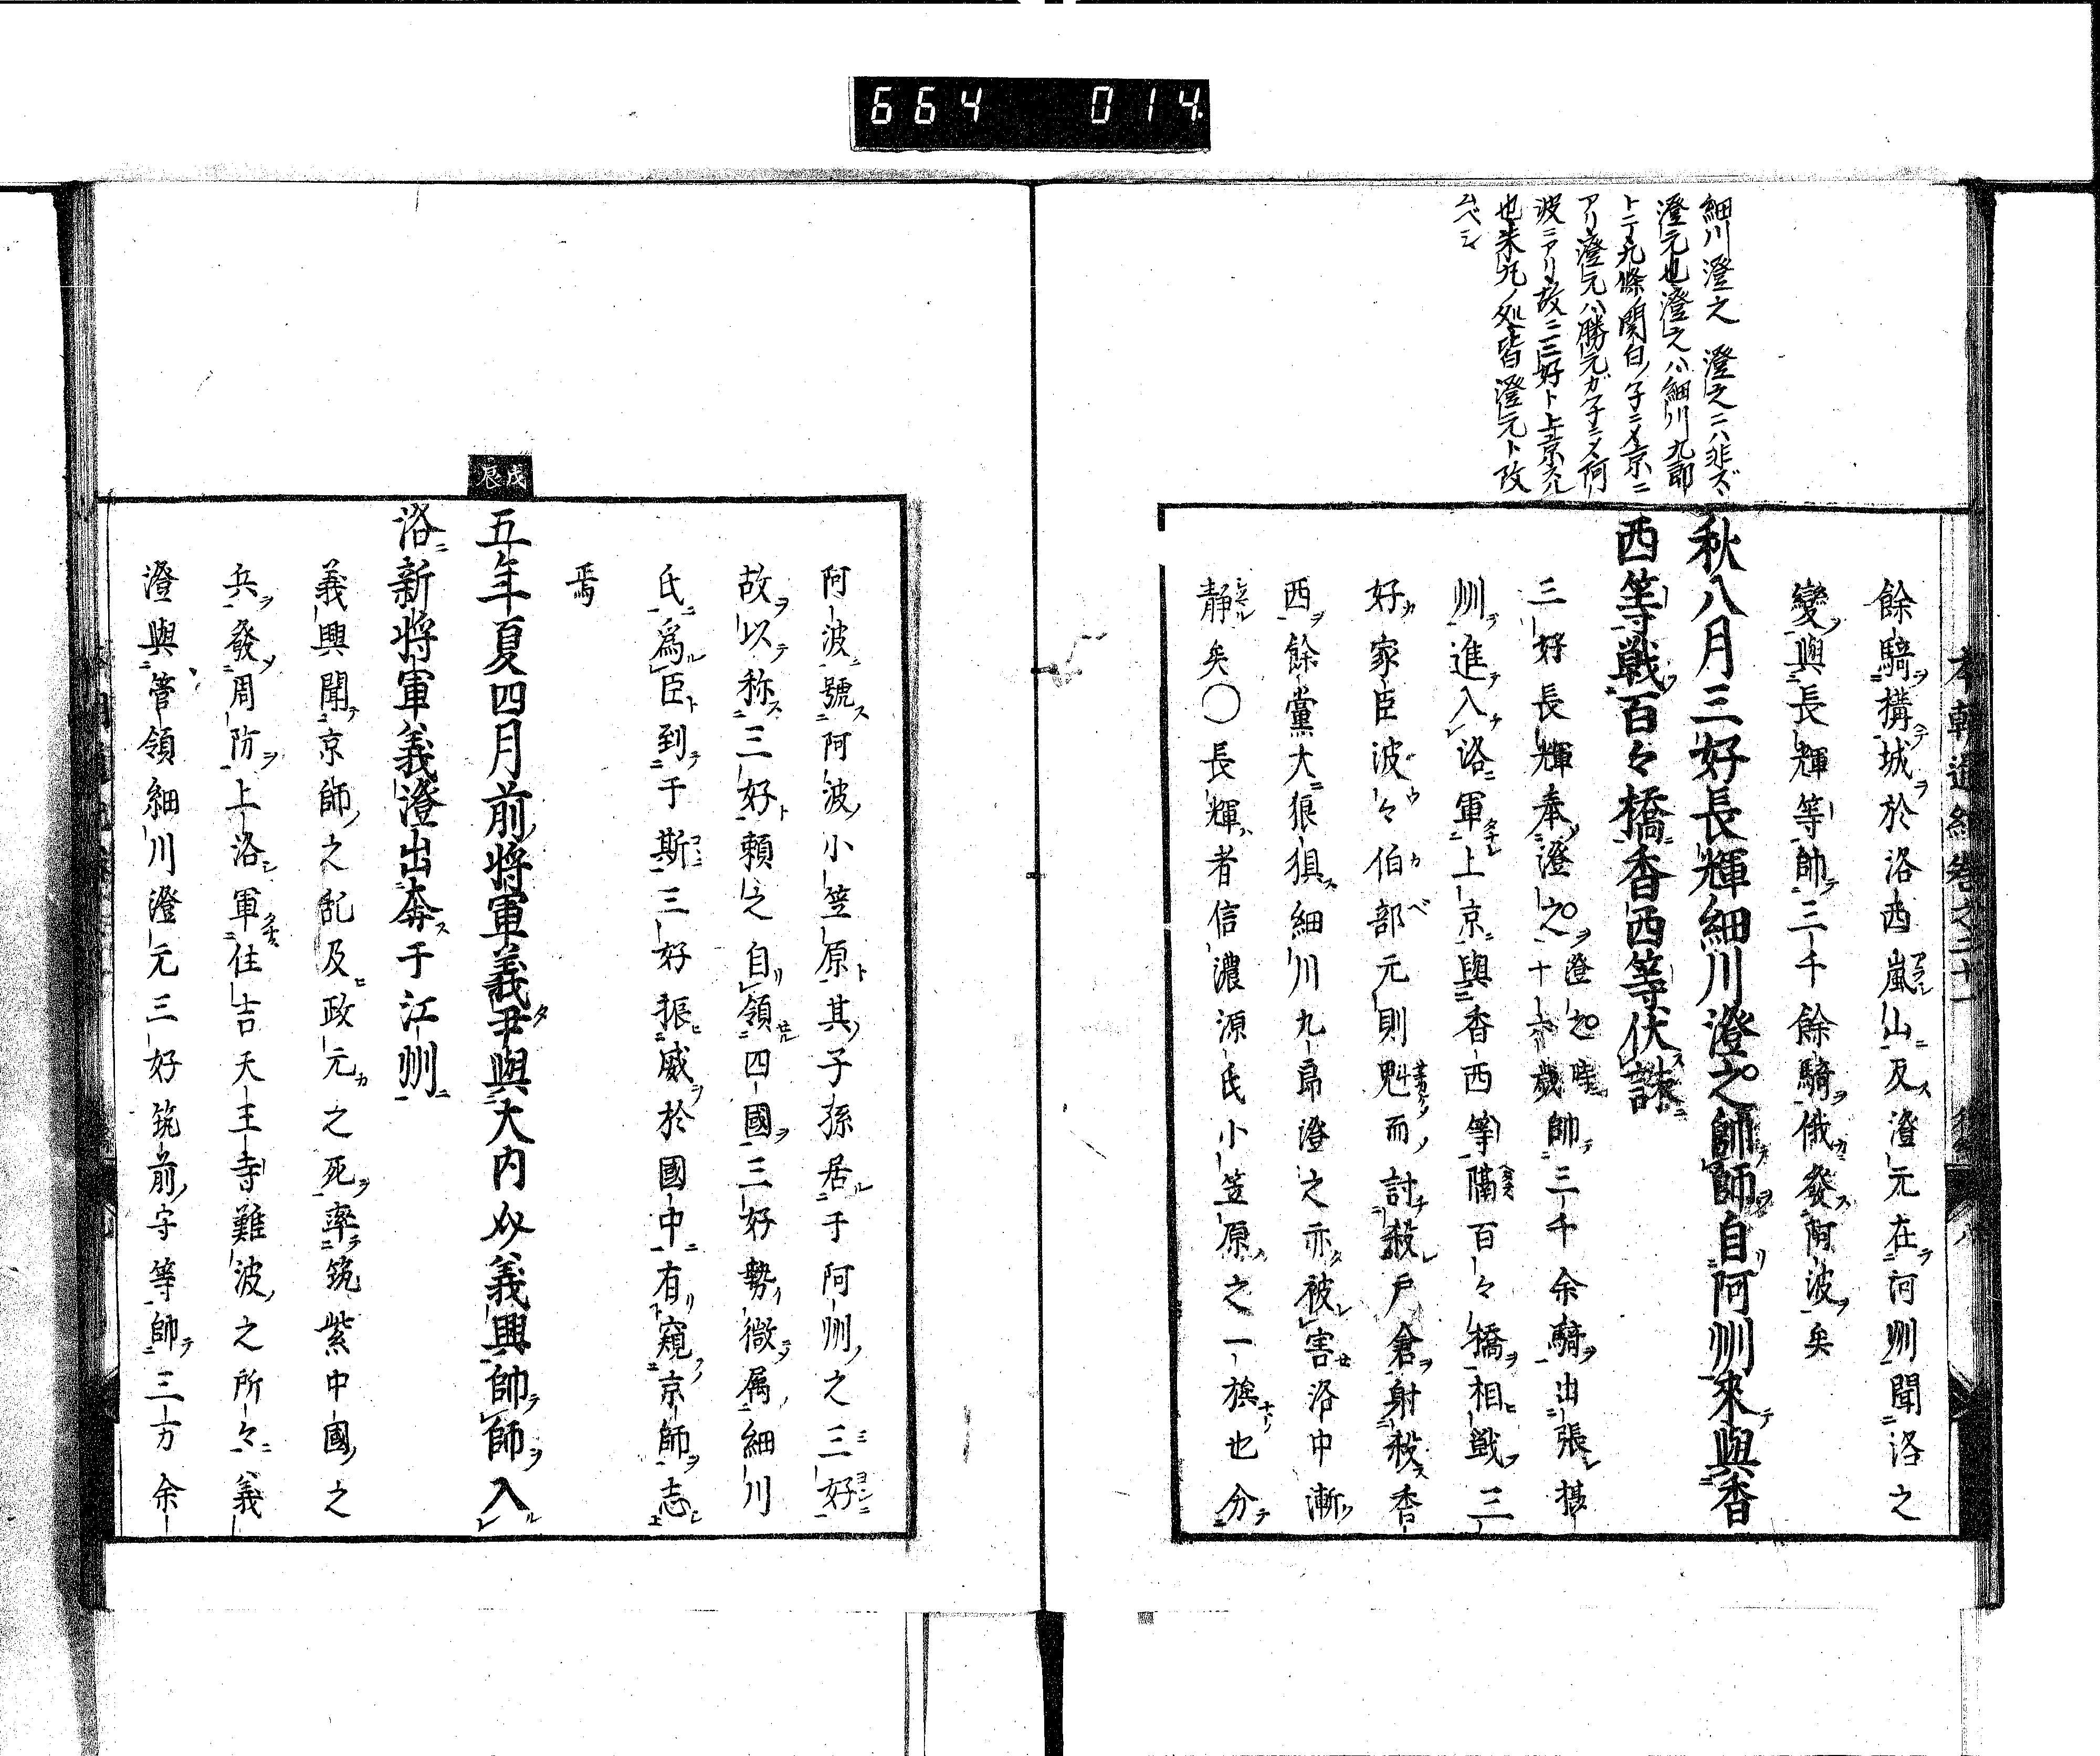 664 014
細川澄之 澄之ニハ非ズ
澄元也澄之ハ細川九郎
トニテ九條ノ関白ノ子ニメ京ニ
アリ澄元ハ勝元ガ子ニメ阿
波ニアリ故ニ三好ト上京スル
也朱凡ノ処皆澄元ト改
ムベシ
本朝通紀巻之二十一
八
餘騎構城於洛西嵐山及澄元在阿州聞洛之
變與長輝等帥三千餘騎俄發阿波矣
秋八月三好長輝細川澄之帥師自阿州來與香
西等戦百々橋香西等伏誅
三好長輝奉澄之澄之時十六歳帥三千余騎出張摂
州進入洛軍上京與香西等隔百々橋相戦三
好家臣波々伯部元則魁而討殺戸倉射殺香
西餘黨大狼狽細川九郎澄之亦被害洛中漸
静矣○長輝者信濃源氏小笠原之一族也分
阿波號阿波小笠原其子孫居于阿州之三好
故以称三好頼之自領四國三好勢微属細川
氏爲臣到于斯三好振威於國中有窺京師志
焉
戊辰
五年夏四月前将軍義尹與大内義興帥師入
洛新将軍義澄出奔于江州
義興聞京師之乱及政元之死率筑紫中國之
兵發周防上洛軍住吉天王寺難波之所々義
澄與管領細川澄元三好筑前守等帥三万余